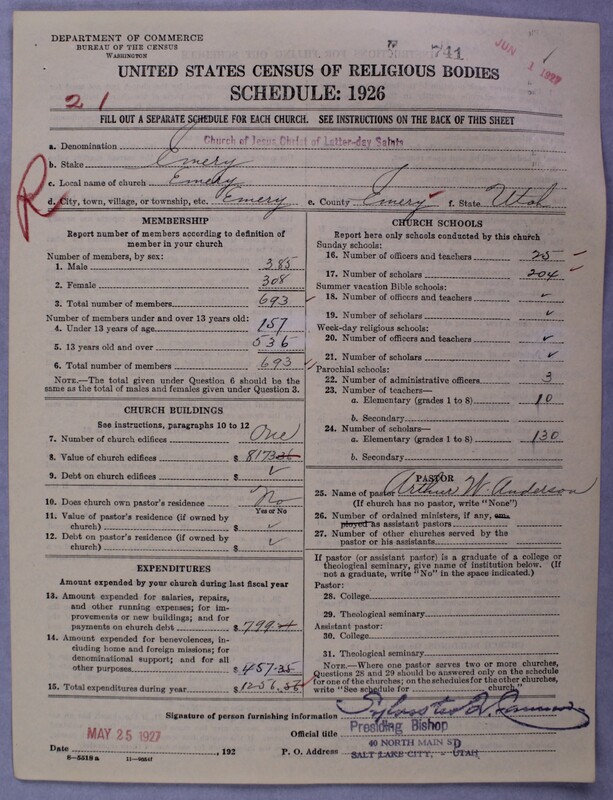 DEPARTMENT OF COMMERCE
BUREAU OF THE CENSUS
WASHINGTON
741
JUN 1 1927
UNITED STATES CENSUS OF RELIGIOUS BODIES
SCHEDULE: 1926
2 1
FILL OUT A SEPARATE SCHEDULE FOR EACH CHURCH. SEE INSTRUCTIONS ON THE BACK OF THIS SHEET
a. Denomination Church of Jesus Christ of Latter-day Saints
b. Stake Emery
c. Local name of church Emery
R
d. City, town, village, or township, etc. Emery e. County Emery f. State Utah
MEMBERSHIP
Report number of members according to definition of
member in your church
Number of members, by sex:
1. Male 385
2. Female 308
3. Total number of members 693
Number of members under and over 13 years old:
4. Under 13 years of age 157
5. 13 years old and over 536
6. Total number of members 693
NOTE.—The total given under Question 6 should be
the same as the total of males and females given under Question 3.
CHURCH BUILDINGS
See instructions, paragraphs 10 to 12
7. Number of church edifices One
8. Value of church edifices $ 8173
9. Debt on church edifices $ ✓
10. Does church own pastor's residence No
Yes or No
11. Value of pastor's residence (if owned by
church) $ ✓
12. Debt on pastor's residence (if owned by
church) $ ✓
EXPENDITURES
Amount expended by your church during last fiscal year
13. Amount expended for salaries, repairs,
and other running expenses; for im-
provements or new buildings; and for
payments on church debt $ 799
14. Amount expended for benevolences, in-
cluding home and foreign missions; for
denominational support; and for all
other purposes $ 457.35
15. Total expenditures during year $ 1256.36
CHURCH SCHOOLS
Report here only schools conducted by this church
Sunday schools:
16. Number of officers and teachers 25
17. Number of scholars 204
Summer vacation Bible schools:
18. Number of officers and teachers ✓
19. Number of scholars ✓
Week-day religious schools:
20. Number of officers and teachers ✓
21. Number of scholars ✓
Parochial schools:
22. Number of administrative officers 3
23. Number of teachers—
a. Elementary (grades 1 to 8) 10
b. Secondary
24. Number of scholars—
a. Elementary (grades 1 to 8) 130
b. Secondary
PASTOR
25. Name of pastor Arthur W. Anderson
(If church has no pastor, write "None")
26. Number of ordained ministers, if any, em-
ployed as assistant pastors
27. Number of other churches served by the
pastor or his assistants
If pastor (or assistant pastor) is a graduate of a college or
theological seminary, give name of institution below. (If
not a graduate, write "No" in the space indicated.)
Pastor:
28. College
29. Theological seminary
Assistant pastor:
30. College
31. Theological seminary
NOTE.—Where one pastor serves two or more churches,
Questions 28 and 29 should be answered only on the schedule
for one of the churches; on the schedules for the other churches,
write "See schedule for church"
Signature of person furnishing information Sylvester Q. Cannon
Official title Presiding Bishop
Date MAY 25 1927, 192 P. O. Address 40 NORTH MAIN ST
SALT LAKE CITY, - UTAH
6—5518 a